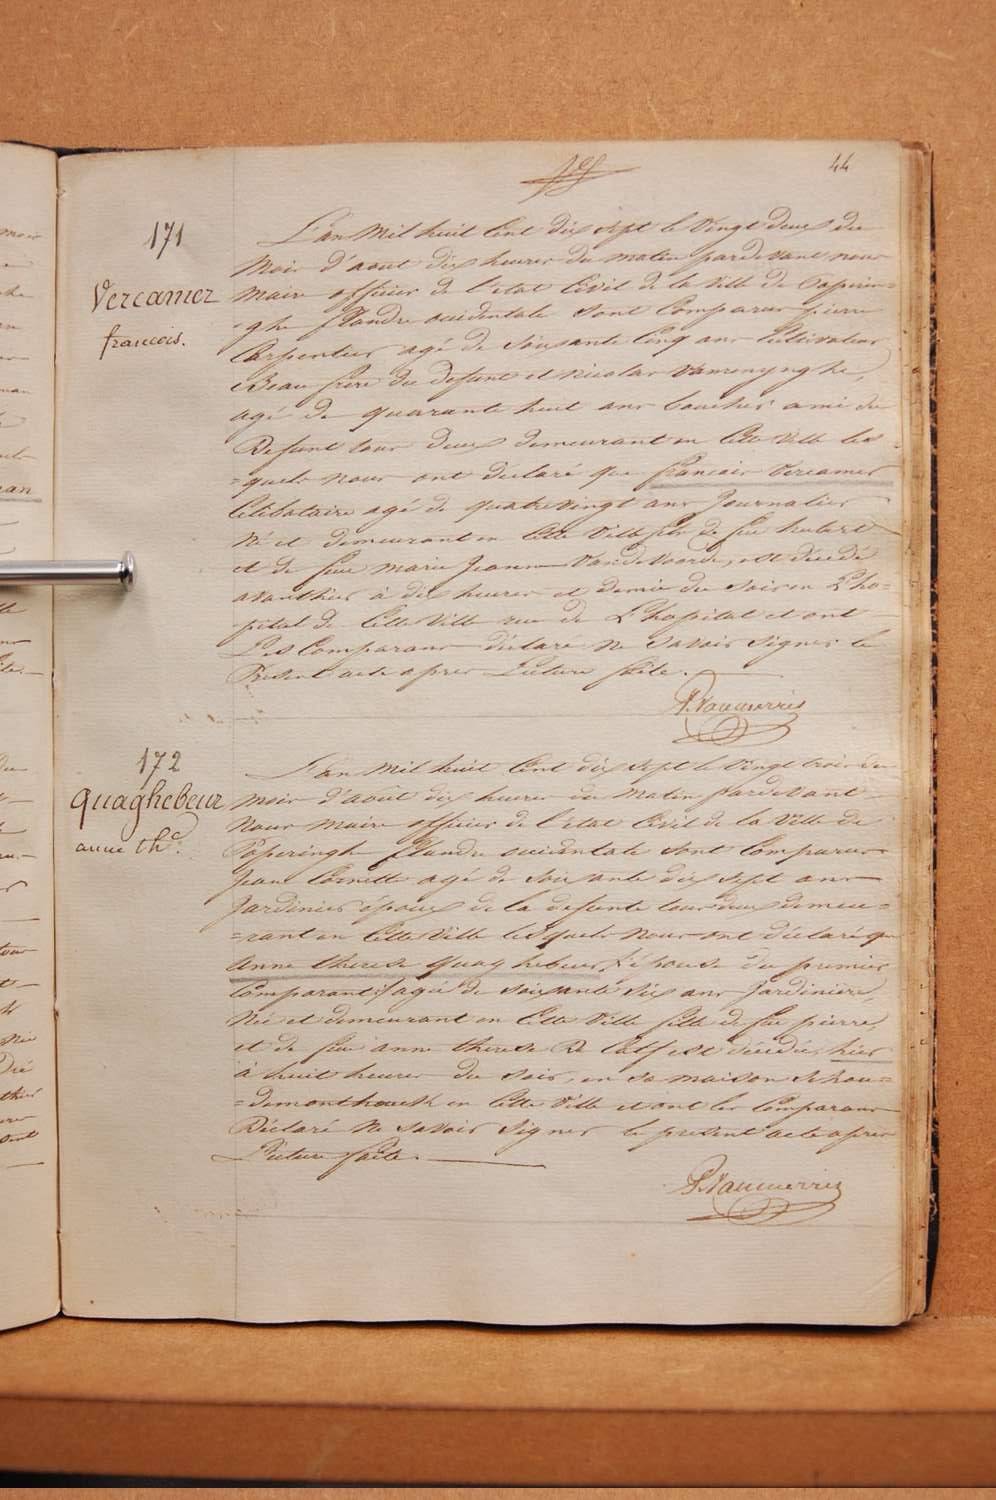 44
171
Vercamer
francois.
L'an Mil huit Cent dix sept le vingt deux du
mois d'aout dix heures du matin pardevant nous
maire officier de l'etat Civil de la Ville de Poperin=
=ghe flandre occidentale sont Comparus pierre
Carpentier agé de soixante Cinq ans Cultivateur
Beau frere du defunt et nicolas Vamenynghe,
agé de quarante huit ans boucher ami du
Defunt tous deux demeurant en Cette Ville les=
=quels nous ont declaré que francois Vercamer
Celibataire agé de quatre vingt ans Journalier
Né et demeurant en Cette Ville fils de feu hubert
et de feue marie Jeanne Vandevoorde, est décédé
avanthier à dix heures et demie du soir en L'ho=
pital de Cette Ville rue de L'hopital et ont
Les Comparans déclaré ne savoir signer le
Present acte apres Lecture faite.
172
quaghebeur
anne thé.
L'an Mil huit Cent dix sept le vingt trois du
mois d'août dix heures du Matin Pardevant
Nous Maire officier de l'etat Civil de la Ville de
Poperinghe flandre occidentale sont Comparus
Jean Cornette agé de soixante dix sept ans
Jardinier époux de la defunte tous deux demeu=
=rant en Cette Ville lesquels nous ont déclaré que
Anne therese quaghebeur, épouse du premier
Comparant agée de soixante six ans Jardiniere,
Né et demeurant en Cette Ville fille de feu pierre,
et de feue anne therese De Calf est décédée, hier
à huit heures du soir, en sa maison Schou=
=demonthouck en Cette Ville et ont les Comparans
Déclaré ne savoir signer le present acte apres
Lecture faite.